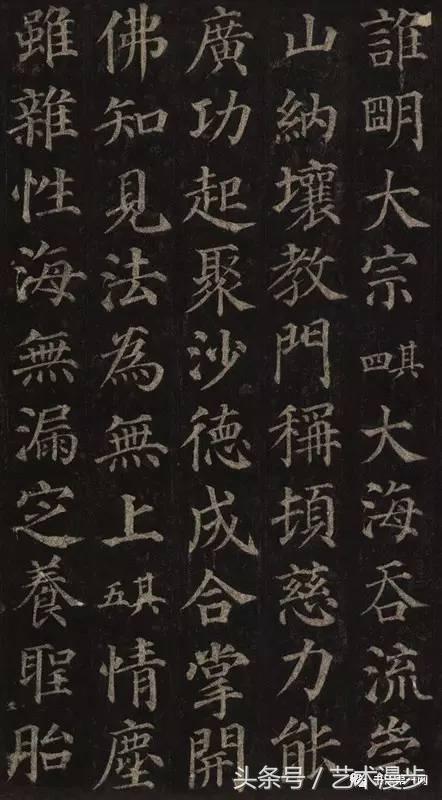 誰明大宗其四大海吞流崇
山納壤教門稱頓慈力能
廣功起聚沙德成合掌開
佛知見法為無上其五情塵
雖雜性海無漏定養聖胎
头条号 / 艺术漫步